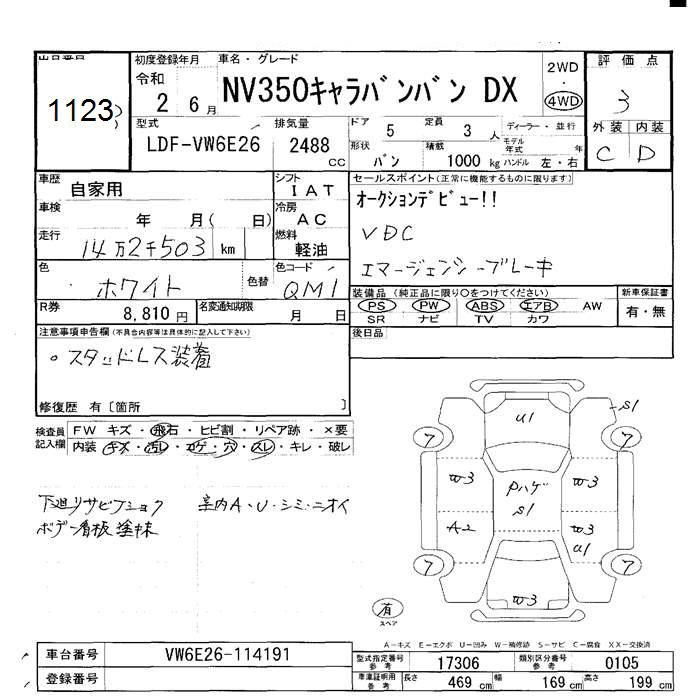 出品番号
1123
初度登録年月
令和
2 6月
車名・グレード
NV350キャラバンバン DX
2WD
・
4WD
評価点
3
外装 内装
C D
型式
LDF-VW6E26
排気量
2488
cc
ドア 5 定員 3 人
形状 バン 積載 1000 kg
ディーラー・並行
モデル年式 年
ハンドル 左・右
車歴 自家用
車検 年 月( 日)
走行 14万2千503 km
シフト IAT
冷房 AC
燃料 軽油
セールスポイント(正常に機能するものに限ります)
オークションデビュー!!
VDC
エマージェンシーブレーキ
色 ホワイト
色替
色コード QM1
R券 8,810円
名変通知期限 月 日
装備品 (純正品に限り○をつけてください)
PS PW ABS エアB AW
SR ナビ TV カワ
新車保証書
有・無
後日品
注意事項申告欄(不具合内容等は具体的に記入して下さい)
。スタッドレス装着
修復歴 有〔箇所 〕
検査員記入欄
FW キズ・飛石・ヒビ割・リペア跡・×要
内装 キズ・汚レ・コゲ・穴・スレ・キレ・破レ
下廻リサビフショク
ボデー看板塗抹
室内A・U・シミ・ニオイ
U1
S1
7 7
W3 Pハゲ W3
S1
A2 W3
U1
7 7
W3
有
スペア
A-キズ E-エクボ U-凹み W-補修跡 S-サビ C-腐食 XX-交換済
車台番号 VW6E26-114191
登録番号
型式指定番号 参考 17306
類別区分番号 参考 0105
車庫証明用 参考
長さ 469 cm 幅 169 cm 高さ 199 cm